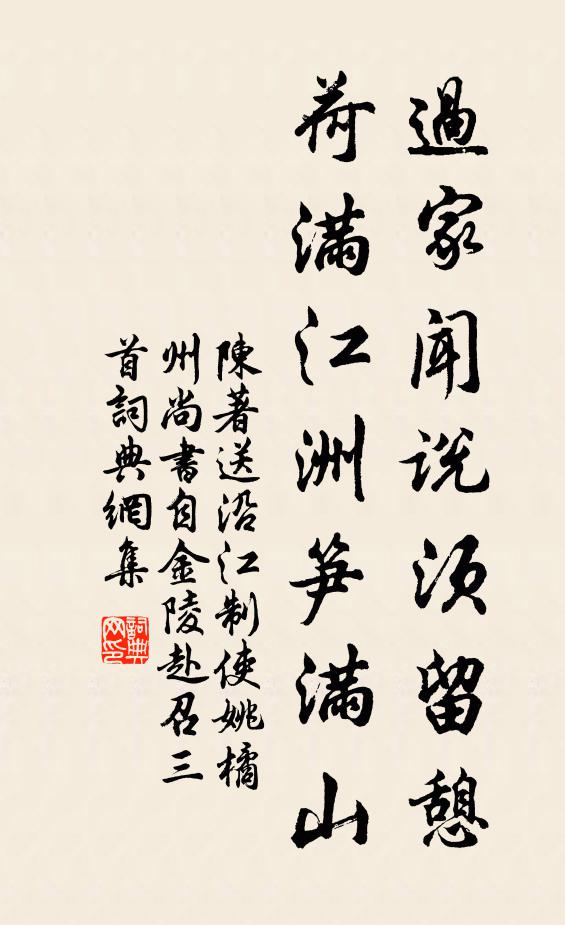 過家聞説須留憩
荷滿江洲笋滿山
陳著送沿江制使姚橘
州尚書自金陵赴召三
首詞典網集
詞典
网印